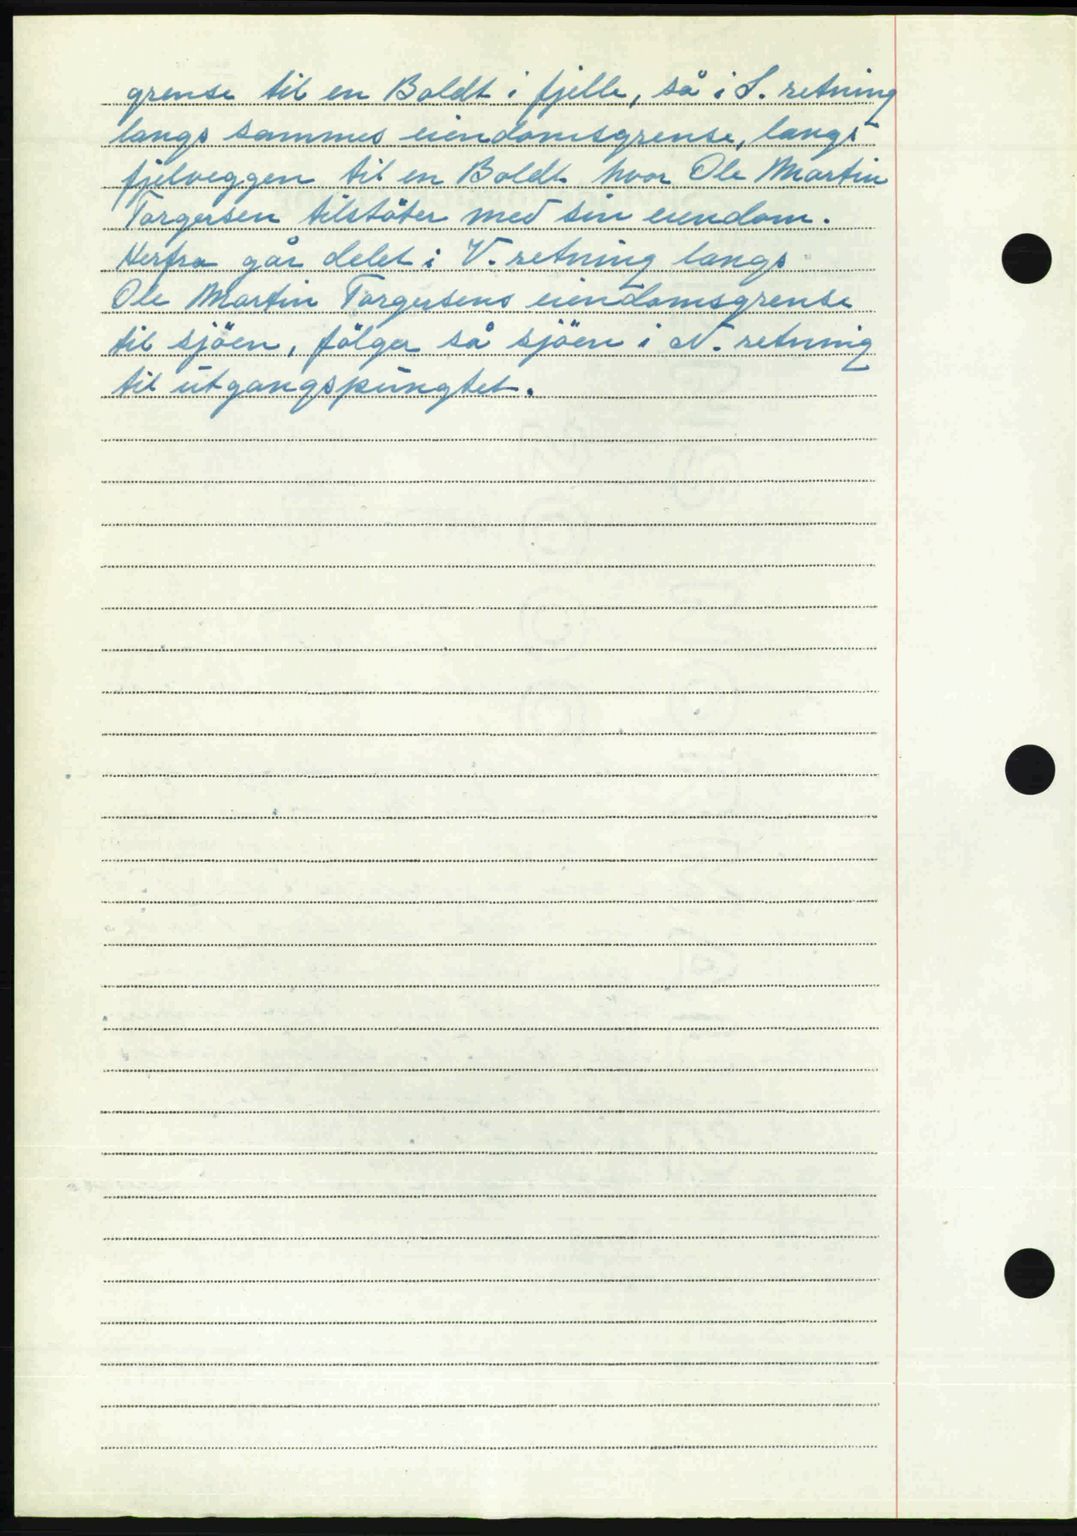 grense til en Boldt i fjelle, så i S. retning
langs sammes eiendomsgrense, langs
fjelveggen til en Boldt hvor Ole Martin
Torgersen tilstöter med sin eiendom.
Herfra går delet i V. retning langs
Ole Martin Torgersens eiendomsgrense
til sjöen, fölger så sjöen i N. retning
til utgangspungtet.